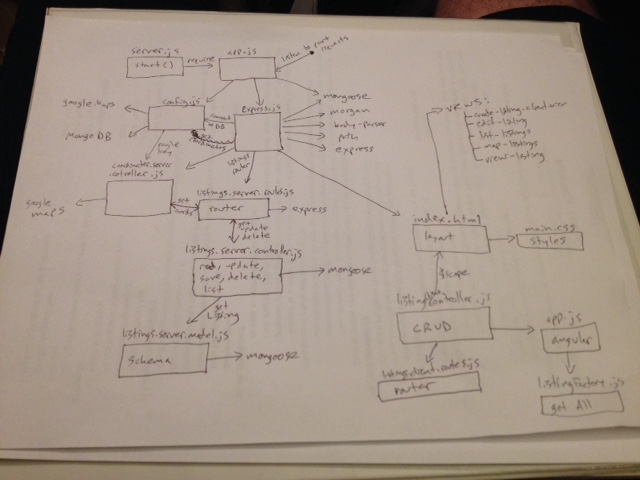 server.js
start()
require
app.js
listen to port
requests
google.maps
MongoDB
config.js
connect
to DB
express.js
mongoose
morgan
body-parser
path
express
google
key
listings
router
google
maps
get
coords
listings.server.routes.js
router
express
get
update
delete
listings.server.controller.js
read, update,
save, delete,
list
mongoose
get
listing
listings.server.model.js
schema
mongoose
views:
edit-listing
list-listings
map-listings
view-listing
index.html
layout
main.css
styles
$scope
CRUD
app.js
angular
listings.client.routes.js
router
listingFactory.js
get All